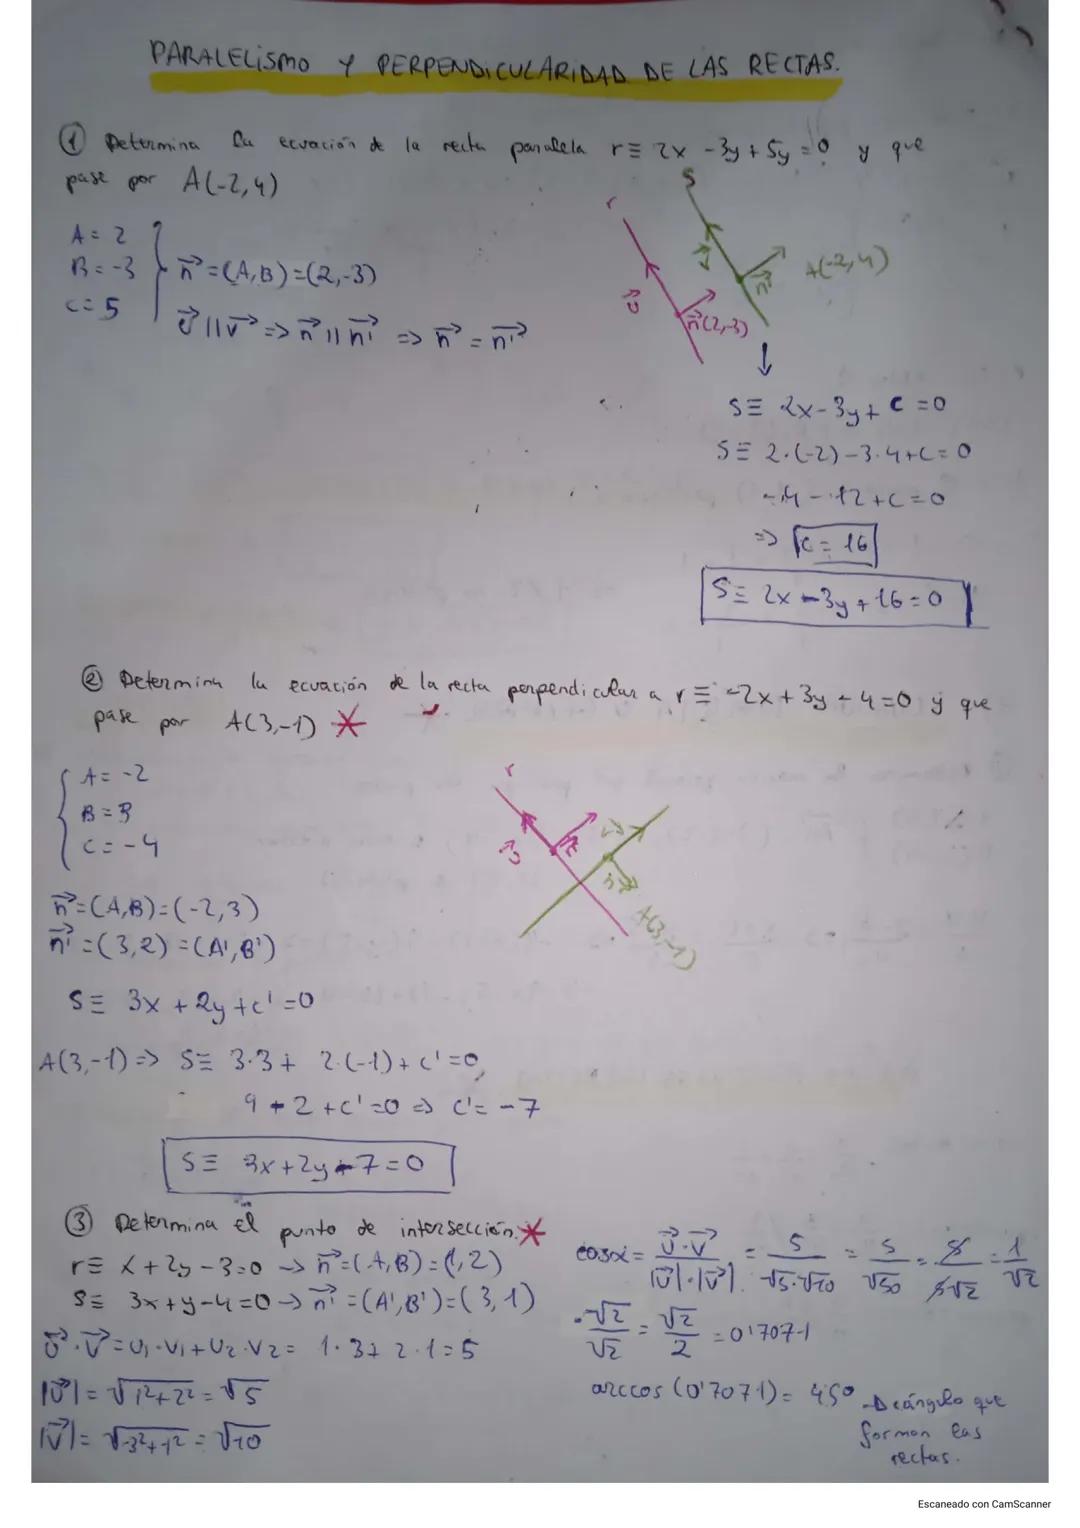 PARALELISMO Y PERPENDICULARIDAD DE LAS RECTAS.
① Determina la ecuación de la recta paralela r≡ 2x -3y + 5y = 0 y que
pase por A(-2,4)
A = 2
B = -3
C = 5
n⃗ = (A,B) = (2,-3)
u⃗ || v⃗ => n⃗ || n⃗' => n⃗ = n⃗'
r
s
u⃗
v⃗
n⃗(2,-3)
n⃗'
A(-2,4)
↓
S≡ 2x-3y + C = 0
S≡ 2·(-2) -3·4+C = 0
-4 - 12 + C = 0
=> C = 16
S≡ 2x - 3y + 16 = 0
② Determina la ecuación de la recta perpendicular a r≡ -2x + 3y - 4 = 0 y que
pase por A(3,-1) *
A = -2
B = 3
C = -4
n⃗ = (A,B) = (-2,3)
n⃗' = (3,2) = (A',B')
r
u⃗
n⃗
v⃗
n⃗'
A(3,-1)
S≡ 3x + 2y + c' = 0
A(3,-1) => S≡ 3·3 + 2·(-1) + c' = 0
9 - 2 + c' = 0 => c' = -7
S≡ 3x + 2y - 7 = 0
③ Determina el punto de intersección. *
r≡ x + 2y - 3 = 0 → n⃗ = (A,B) = (1,2)
S≡ 3x + y - 4 = 0 → n⃗' = (A',B') = (3,1)
u⃗·v⃗ = u1·v1 + u2·v2 = 1·3 + 2·1 = 5
|u⃗| = √1²+2² = √5
|v⃗| = √3²+1² = √10
cosα = u⃗·v⃗ / |u⃗|·|v⃗| = 5/√5·√10 = 5/√50 = 5/5√2 = 1/√2
·√2/√2 = √2/2 = 0'7071
arccos (0'7071) = 45° → ángulo que
forman las
rectas.
Escaneado con CamScanner